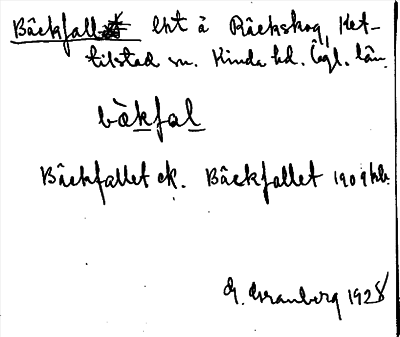 Bäckfall lht å Räckskog, Ket-
tilstad sn. Kinda hd. Ögl. län.
bäkfal
Bäckfallet ek. Bäckfallet 1909 kb.
G. Granberg 1928